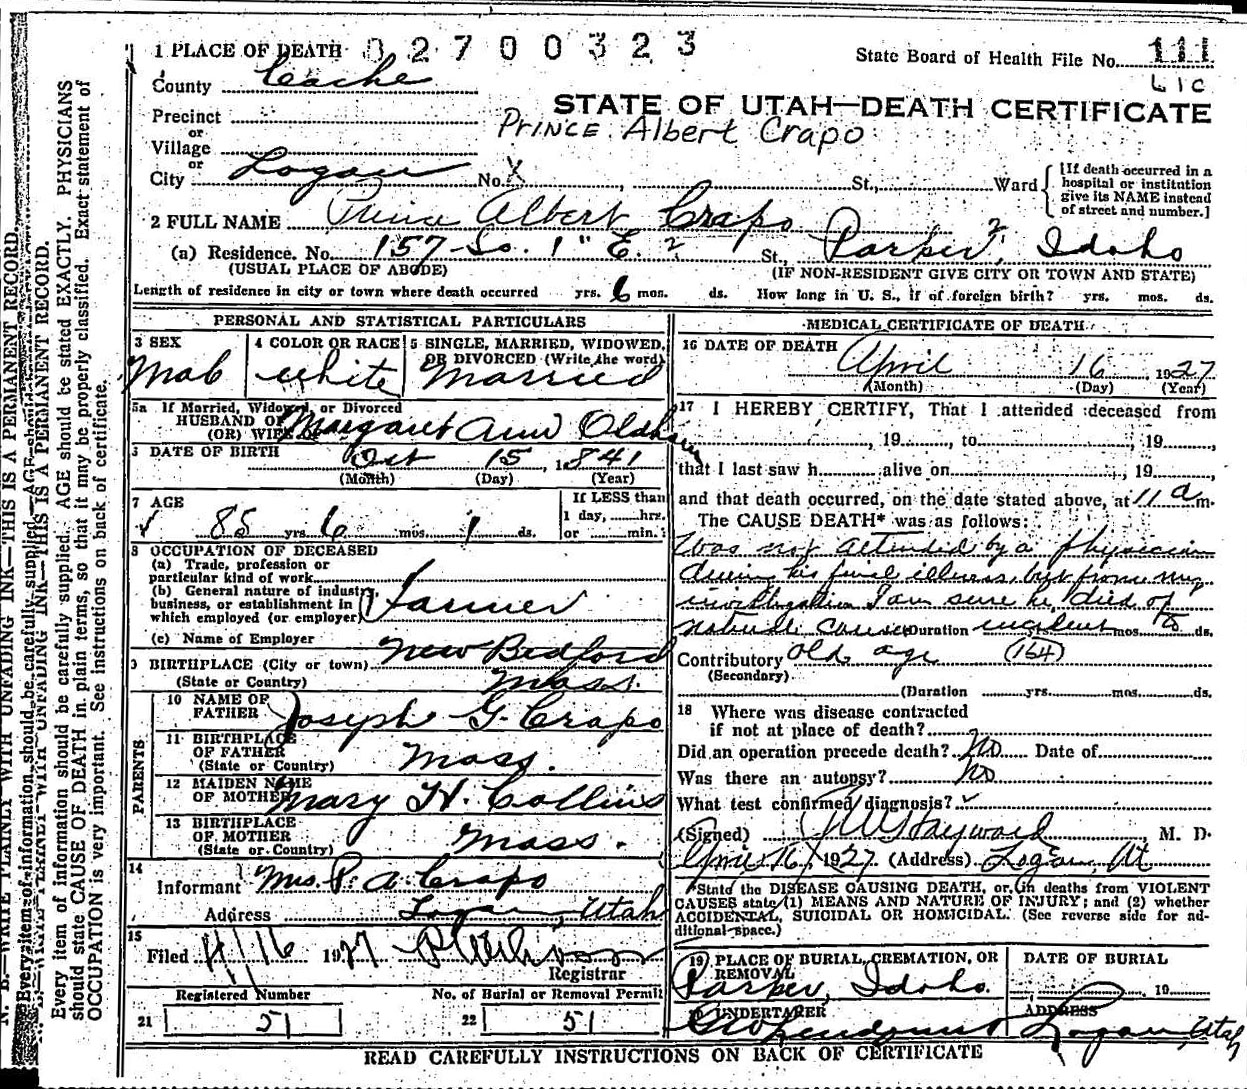 1 PLACE OF DEATH 02700323
State Board of Health File No. 111
County Cache
STATE OF UTAH—DEATH CERTIFICATE
PRINCE Albert Crapo
Precinct
or
Village
or
City Logan No. X St., Ward
[If death occurred in a
hospital or institution
give its NAME instead
of street and number.]
2 FULL NAME Prince Albert Crapo
(a) Residence. No. 157 So. 1" E. St., Parker, Idaho
(USUAL PLACE OF ABODE) (IF NON-RESIDENT GIVE CITY OR TOWN AND STATE)
Length of residence in city or town where death occurred yrs. 6 mos. ds. How long in U. S., if of foreign birth? yrs. mos. ds.
PERSONAL AND STATISTICAL PARTICULARS
3 SEX
Male
4 COLOR OR RACE
White
5 SINGLE, MARRIED, WIDOWED,
OR DIVORCED (Write the word)
Married
5a If Married, Widowed, or Divorced
HUSBAND OF
(OR) WIFE OF
Margaret Ann Oldham
6 DATE OF BIRTH
Oct 15, 1841
(Month) (Day) (Year)
7 AGE
85 yrs. 6 mos. 1 ds.
If LESS than
1 day, hrs.
or min.
8 OCCUPATION OF DECEASED
(a) Trade, profession or
particular kind of work
(b) General nature of industry,
business, or establishment in
which employed (or employer)
Farmer
(c) Name of Employer
9 BIRTHPLACE (City or town) New Bedford
(State or Country) Mass.
PARENTS
10 NAME OF
FATHER
Joseph G. Crapo
11 BIRTHPLACE
OF FATHER
(State or Country)
Mass.
12 MAIDEN NAME
OF MOTHER
Mary H. Collins
13 BIRTHPLACE
OF MOTHER
(State or Country)
Mass.
14
Informant Mrs. P. A. Crapo
Address Logan, Utah
15
Filed 4/16 1927
Registrar
Registered Number
21 51
No. of Burial or Removal Permit
22 51
MEDICAL CERTIFICATE OF DEATH
16 DATE OF DEATH
April 16 1927
(Month) (Day) (Year)
17 I HEREBY CERTIFY, That I attended deceased from
, 19 , to , 19 ,
that I last saw h alive on , 19 ,
and that death occurred, on the date stated above, at 11 a m.
The CAUSE DEATH* was as follows:
Was not attended by a physician
during his final illness, but from my
investigation I am sure he died of
natural causes Duration incident yrs. mos. to ds.
Contributory old age (164)
(Secondary)
(Duration yrs. mos. ds.
18 Where was disease contracted
if not at place of death?
Did an operation precede death? No Date of
Was there an autopsy? No
What test confirmed diagnosis?
(Signed) Hayward, M. D.
April 16, 1927. (Address) Logan, Ut
*State the DISEASE CAUSING DEATH, or, in deaths from VIOLENT
CAUSES state (1) MEANS AND NATURE OF INJURY; and (2) whether
ACCIDENTAL, SUICIDAL OR HOMICIDAL. (See reverse side for ad-
ditional space.)
19 PLACE OF BURIAL, CREMATION, OR
REMOVAL
Parker, Idaho.
DATE OF BURIAL
, 19
20 UNDERTAKER
ADDRESS
Logan, Utah
READ CAREFULLY INSTRUCTIONS ON BACK OF CERTIFICATE
N. B.—WRITE PLAINLY WITH UNFADING INK—THIS IS A PERMANENT RECORD.
Every item of information should be carefully supplied. AGE should be stated EXACTLY. PHYSICIANS
should state CAUSE OF DEATH in plain terms, so that it may be properly classified. Exact statement of
OCCUPATION is very important. See instructions on back of certificate.